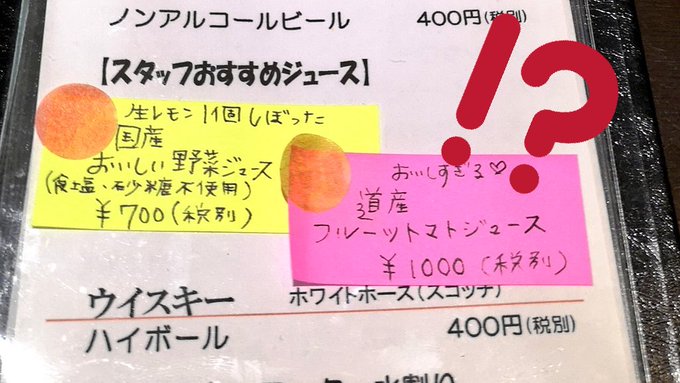 ノンアルコールビール 400円(税別)
【スタッフおすすめジュース】
生レモン1個しぼった
国産
おいしい野菜ジュース
(食塩・砂糖不使用)
¥700(税別)
おいしすぎる♡
道産
フルーツトマトジュース
¥1000(税別)
!?
ウイスキー ホワイトホース(スコッチ)
ハイボール 400円(税別)